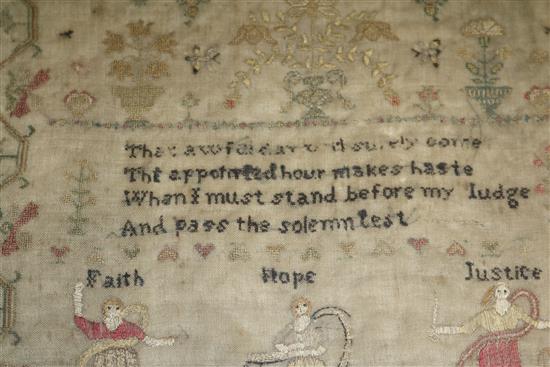 That awful day will surely come
The appointed hour makes haste
When I must stand before my Iudge
And pass the solemn test
Faith Hope Justice